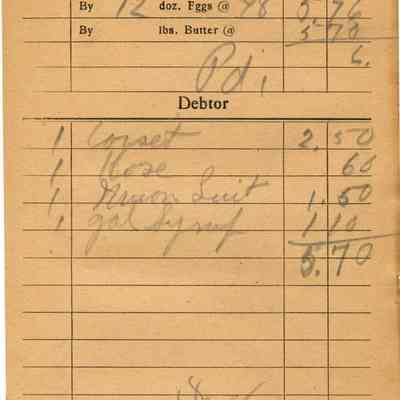 By 12 doz. Eggs @ 48 5.76
By lbs. Butter @ 5 70
6.
Pd.
Debtor
1 Corset 2.50
1 Hose 60
1 Union Suit 1.50
1 gal Syrup 1 10
5.70